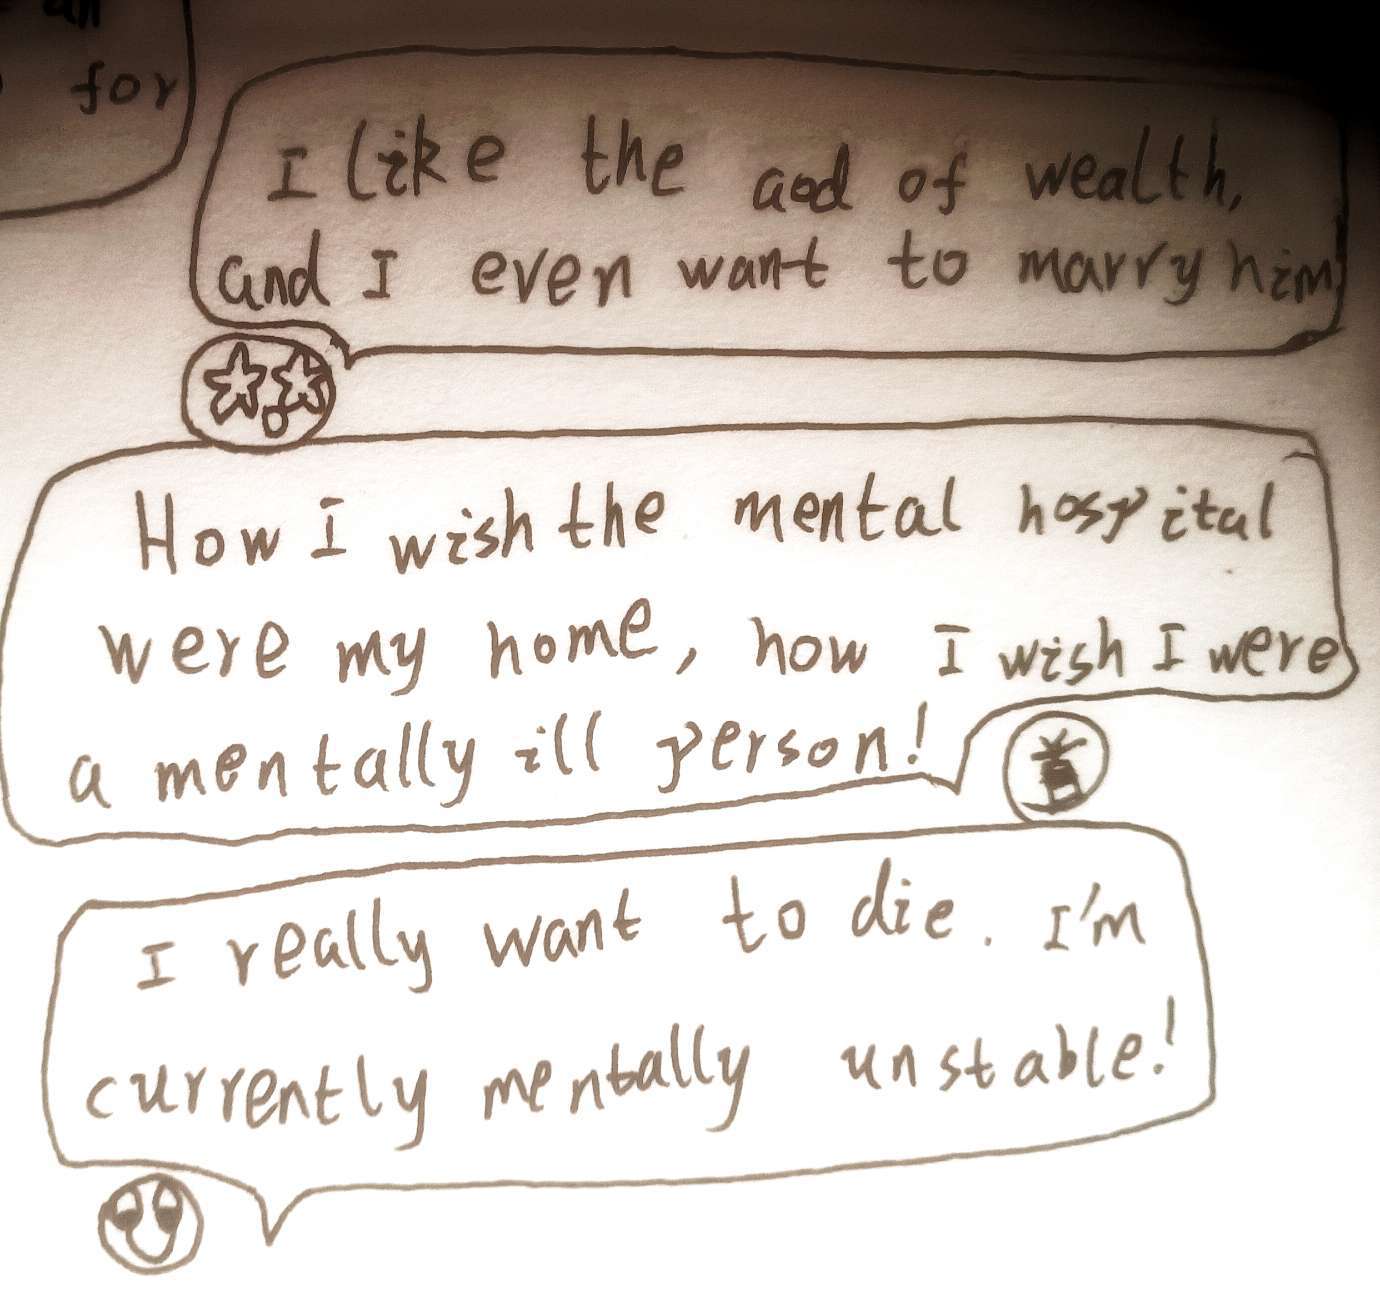 for
I like the god of wealth,
and I even want to marry him
How I wish the mental hospital
were my home, how I wish I were
a mentally ill person!
I really want to die. I'm
currently mentally unstable!